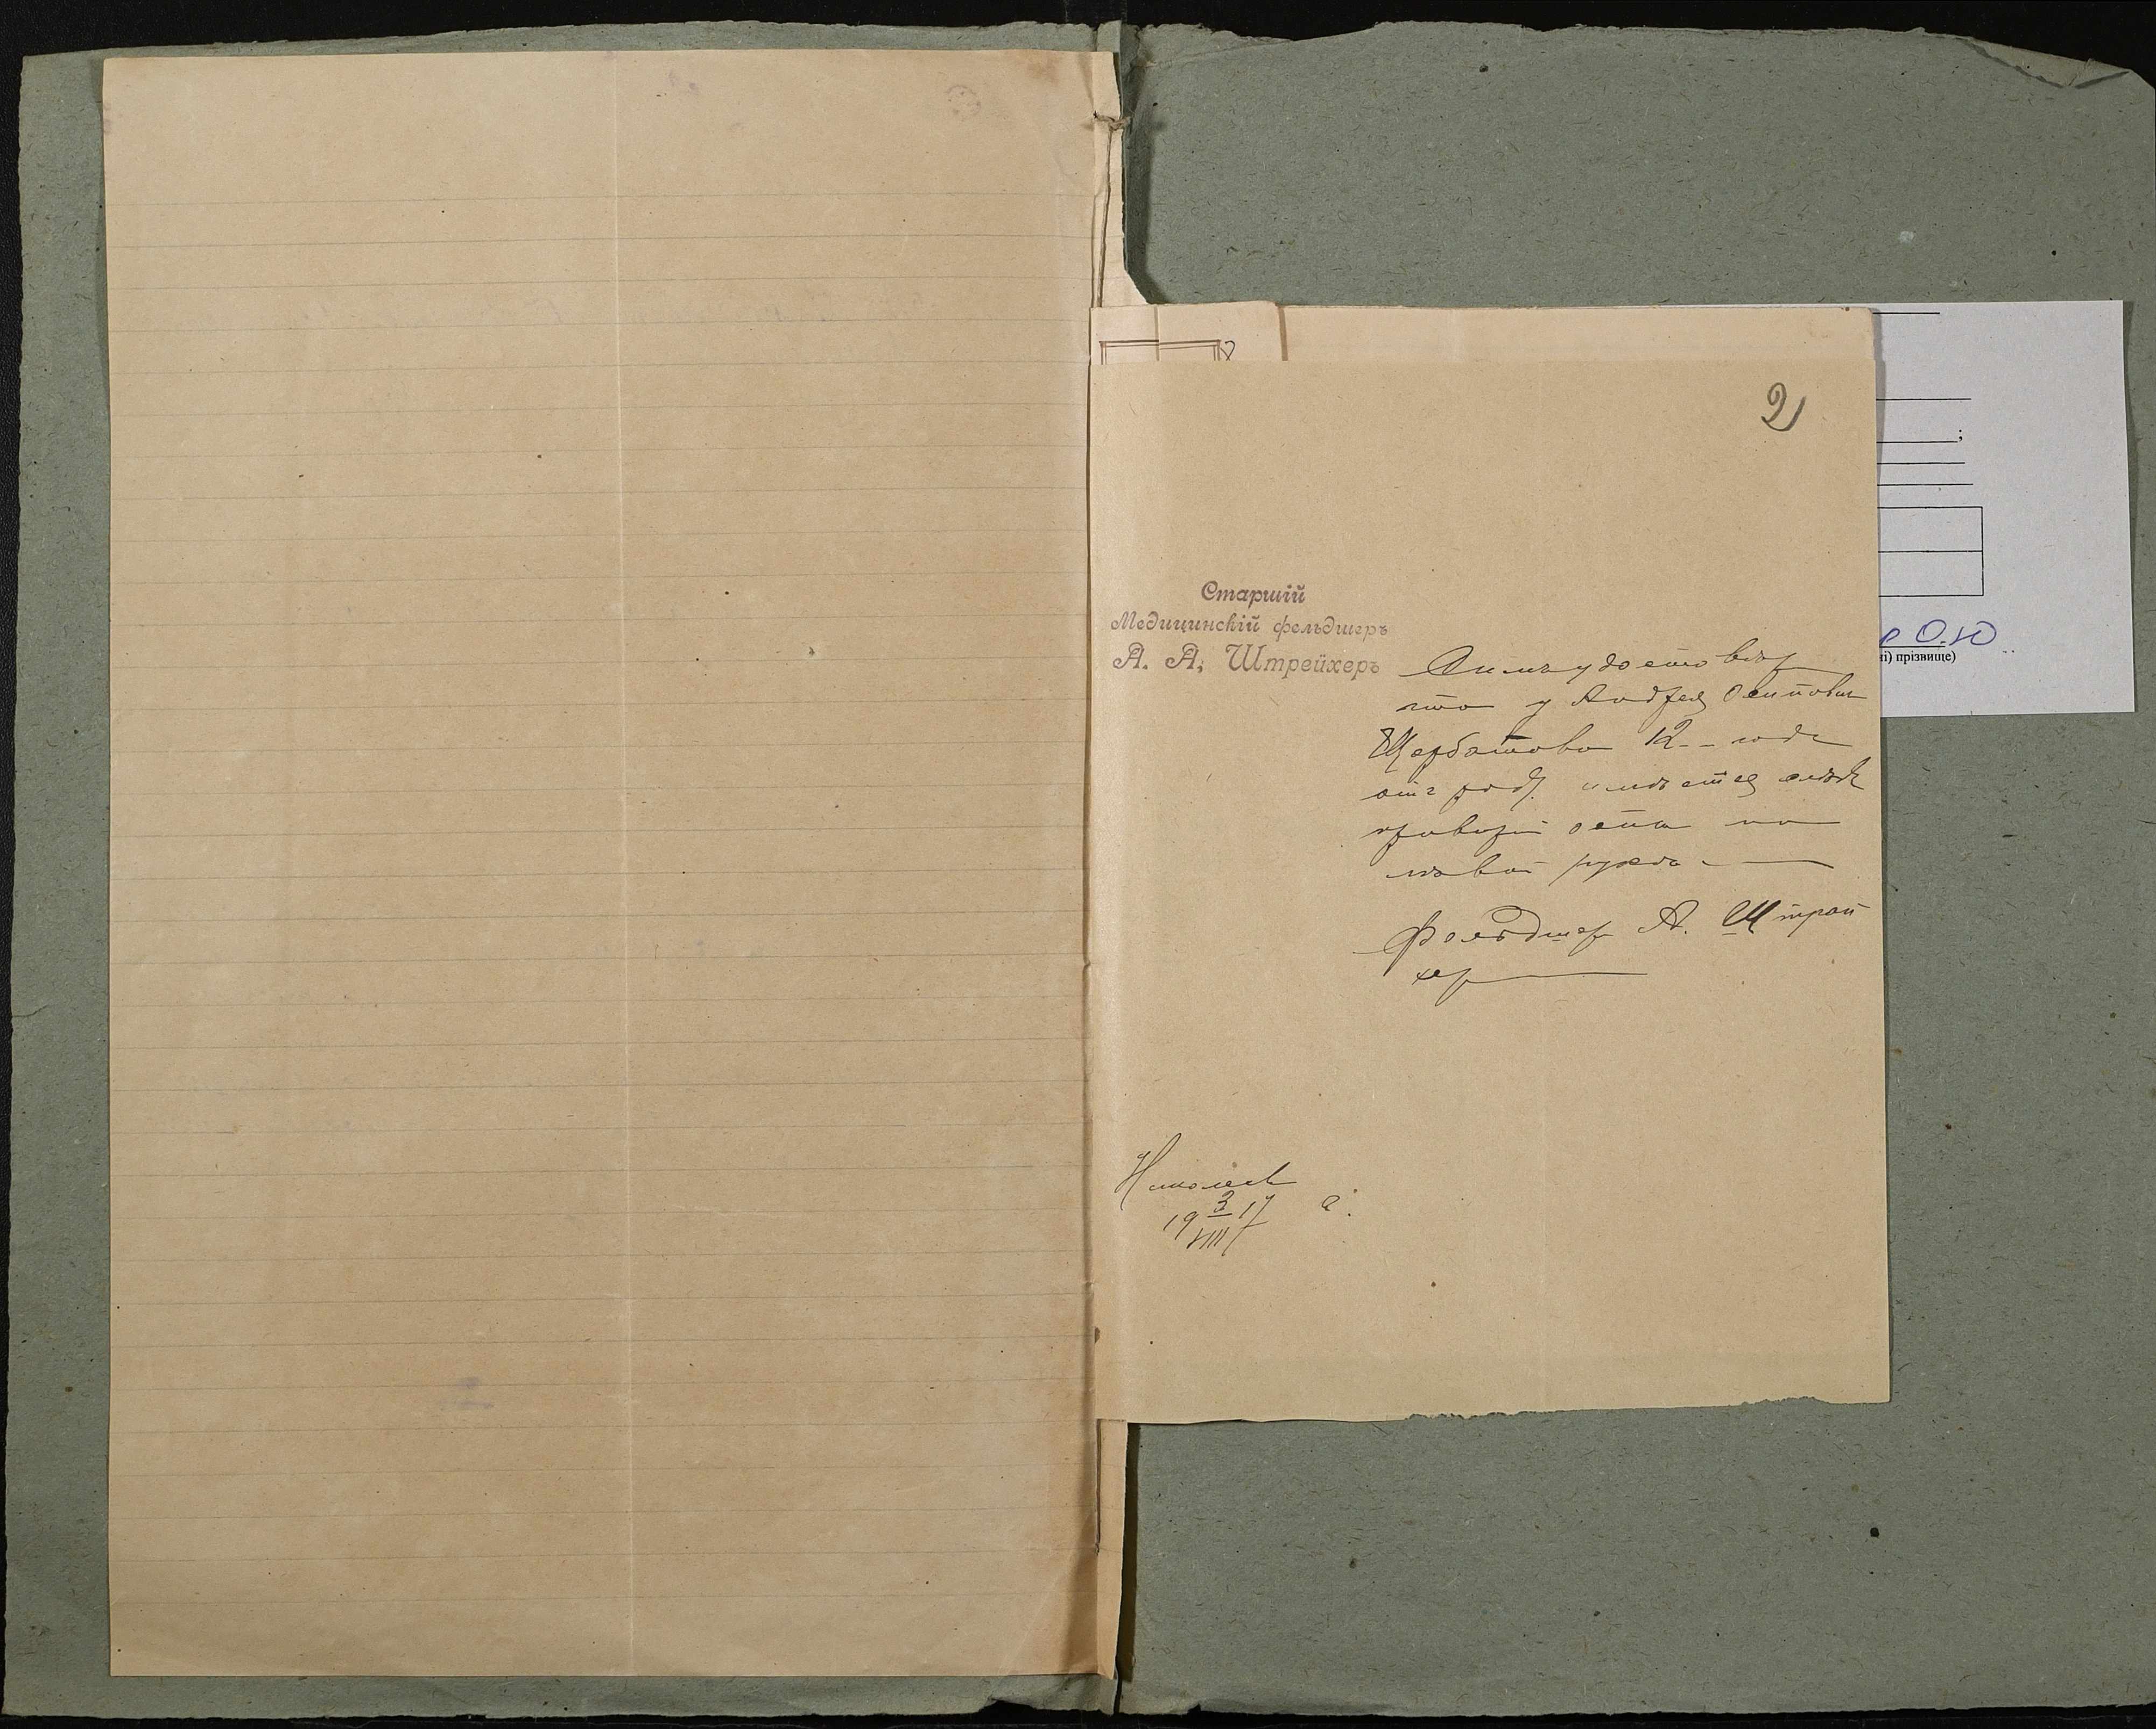 2
Старшій
Медицинскій фельдшеръ
А. А. Штрейхеръ
Симъ удостовѣр
что у Андрея Осипович
Щербатова 12 - - года
отъ род. имѣется слѣды
привирт оспы на
лѣвой рукѣ
Фельдшер А. Штрай
хер
Николаев
19 3/VIII 17 г.
0.Ю
ні) прізвище)
;